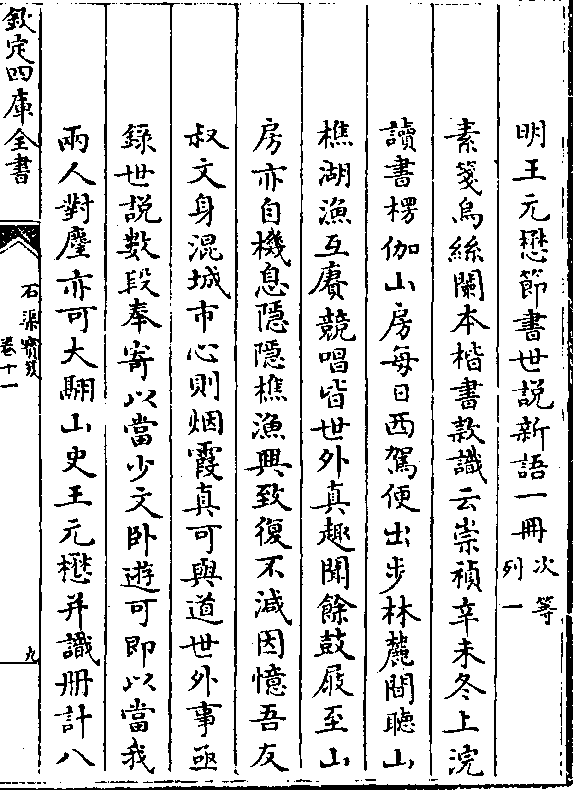 明王元懋節書世說新語一冊次等
列一
素箋烏絲闌本楷書款識云崇禎辛未冬上浣
讀書楞伽山房每日西駕便出步林麓間聽山
樵湖漁互賡競唱皆世外真趣聞餘鼓屐至山
房亦自機息隱隱樵漁興致復不減因憶吾友
叔文身混城市心則烟霞真可與道世外事亟
錄世說數段奉寄以當少文卧遊可即以當我
兩人對麈亦可大翮山史王元懋并識冊計八
欽定四庫全書
石渠寶笈
卷十一
九